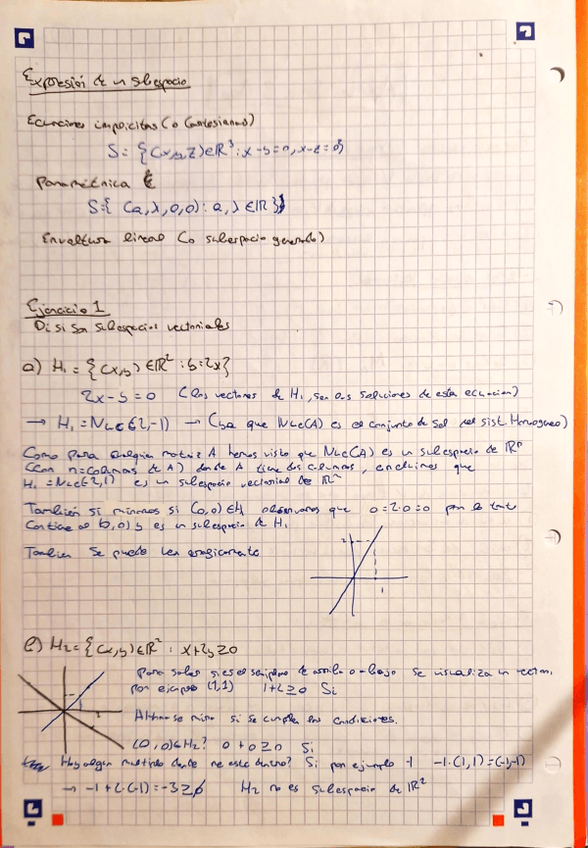 Expresión de un subespacio
Ecuaciones implícitas (o Cartesianas)
S = {(x,y,z) ∈ ℝ³ : x-y=0, x-z=0}
Paramétrica
S={(a,λ,0,0) : a,λ ∈ ℝ}
Envoltura lineal (o subespacio generado)
Ejercicio 1
Di si son subespacios vectoriales
a) H₁ = {(x,y) ∈ ℝ² : y=2x}
2x-y=0 (los vectores de H₁, son las soluciones de esta ecuación)
→ H₁ = Nul(2,-1) → (ya que Nul(A) es el conjunto de sol del sist. Homogéneo)
Como para cualquier matriz A hemos visto que Nul(A) es un subespacio de ℝⁿ
(con n=columnas de A) donde A tiene dos columnas, concluimos que
H₁ = Nul(2,1) es un subespacio vectorial de ℝ²
También si miramos si (0,0) ∈ H₁ observamos que 0=2·0=0 por lo tanto
contiene al (0,0) y es un subespacio de H₁
También se puede ver gráficamente
2
1
b) H₂ = {(x,y) ∈ ℝ² : x+2y ≥ 0
Para saber si es el semiplano de arriba o abajo se visualiza un vector,
por ejemplo (1,1) 1+2 ≥ 0 Si
Ahora se mira si se cumplen las condiciones.
(0,0) ∈ H₂? 0+0 ≥ 0 Si
Hay algun multiplo donde no este dentro? Si por ejemplo -1 -1·(1,1)=(-1,-1)
→ -1+2·(-1)=-3 ≥ 0 H₂ no es subespacio de ℝ²